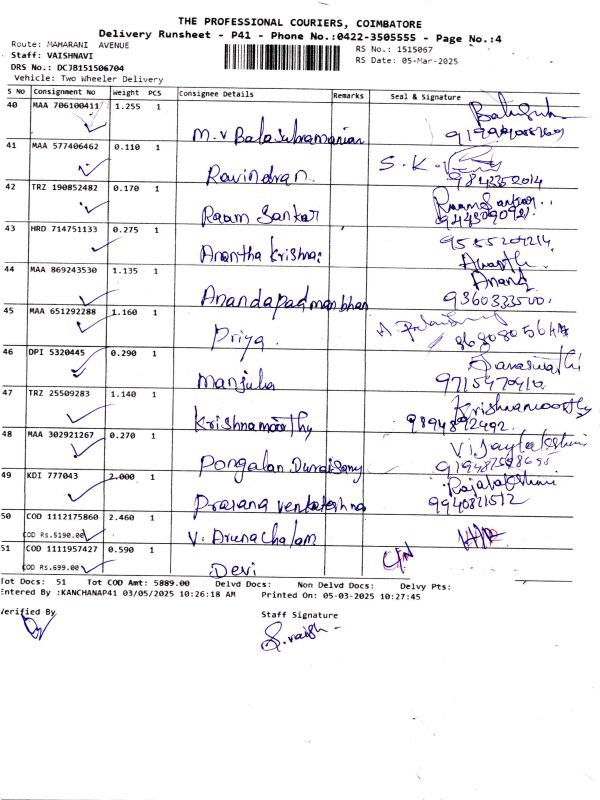 THE PROFESSIONAL COURIERS, COIMBATORE
Delivery Runsheet - P41 - Phone No.:0422-3505555 - Page No.:4
Route: MAHARANI AVENUE
RS No.: 1515067
Staff: VAISHNAVI
RS Date: 05-Mar-2025
DRS No.: DCJB151506704
Vehicle: Two Wheeler Delivery
S No Consignment No Weight PCS Consignee Details Remarks Seal & Signature
40 MAA 706100411 1.255 1
M.V Balasubramanian
41 MAA 577406462 0.110 1
Ravindran. S.K.
9843352014
42 TRZ 190852482 0.170 1
Raam Sankar
43 HRD 714751133 0.275 1
Anantha Krishna
44 MAA 869243530 1.135 1 Anand
Anandapadmanbhan 9360333500.
45 MAA 651292288 1.160 1
Priya
46 DPI 5320445 0.290 1 Saraswathi
Manjula 9715470410.
47 TRZ 25509283 1.140 1 Krishnamoorthy
Krishnamoorthy 9894892492
48 MAA 302921267 0.270 1 Vijaylakshmi
Pongalan Duraisamy
49 KDI 777043 2.000 1 Rajalakshmi
Prasana Venkateshna 9940821512
50 COD 1112175860 2.460 1
COD Rs.5190.00 V. Arunachalam
51 COD 1111957427 0.590 1 C/N
COD Rs.699.00 Devi
Tot Docs: 51 Tot COD Amt: 5889.00 Delvd Docs: Non Delvd Docs: Delvy Pts:
Entered By :KANCHANAP41 03/05/2025 10:26:18 AM Printed On: 05-03-2025 10:27:45
Verified By Staff Signature
S.vaish